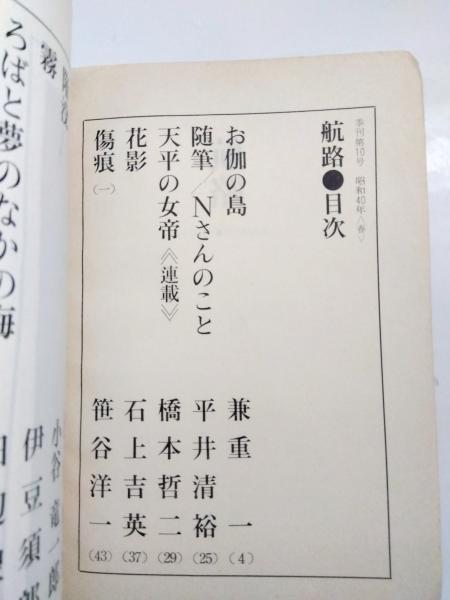 季刊第10号 昭和40年〈春〉
航路●目次
お伽の島 兼重一 (4)
随筆/Nさんのこと 平井清裕 (25)
天平の女帝《連載》 橋本哲二 (29)
花影 石上吉英 (37)
傷痕(一) 笹谷洋一 (43)
霧
小谷竜一郎
ろばと夢のなかの海
伊豆須郎